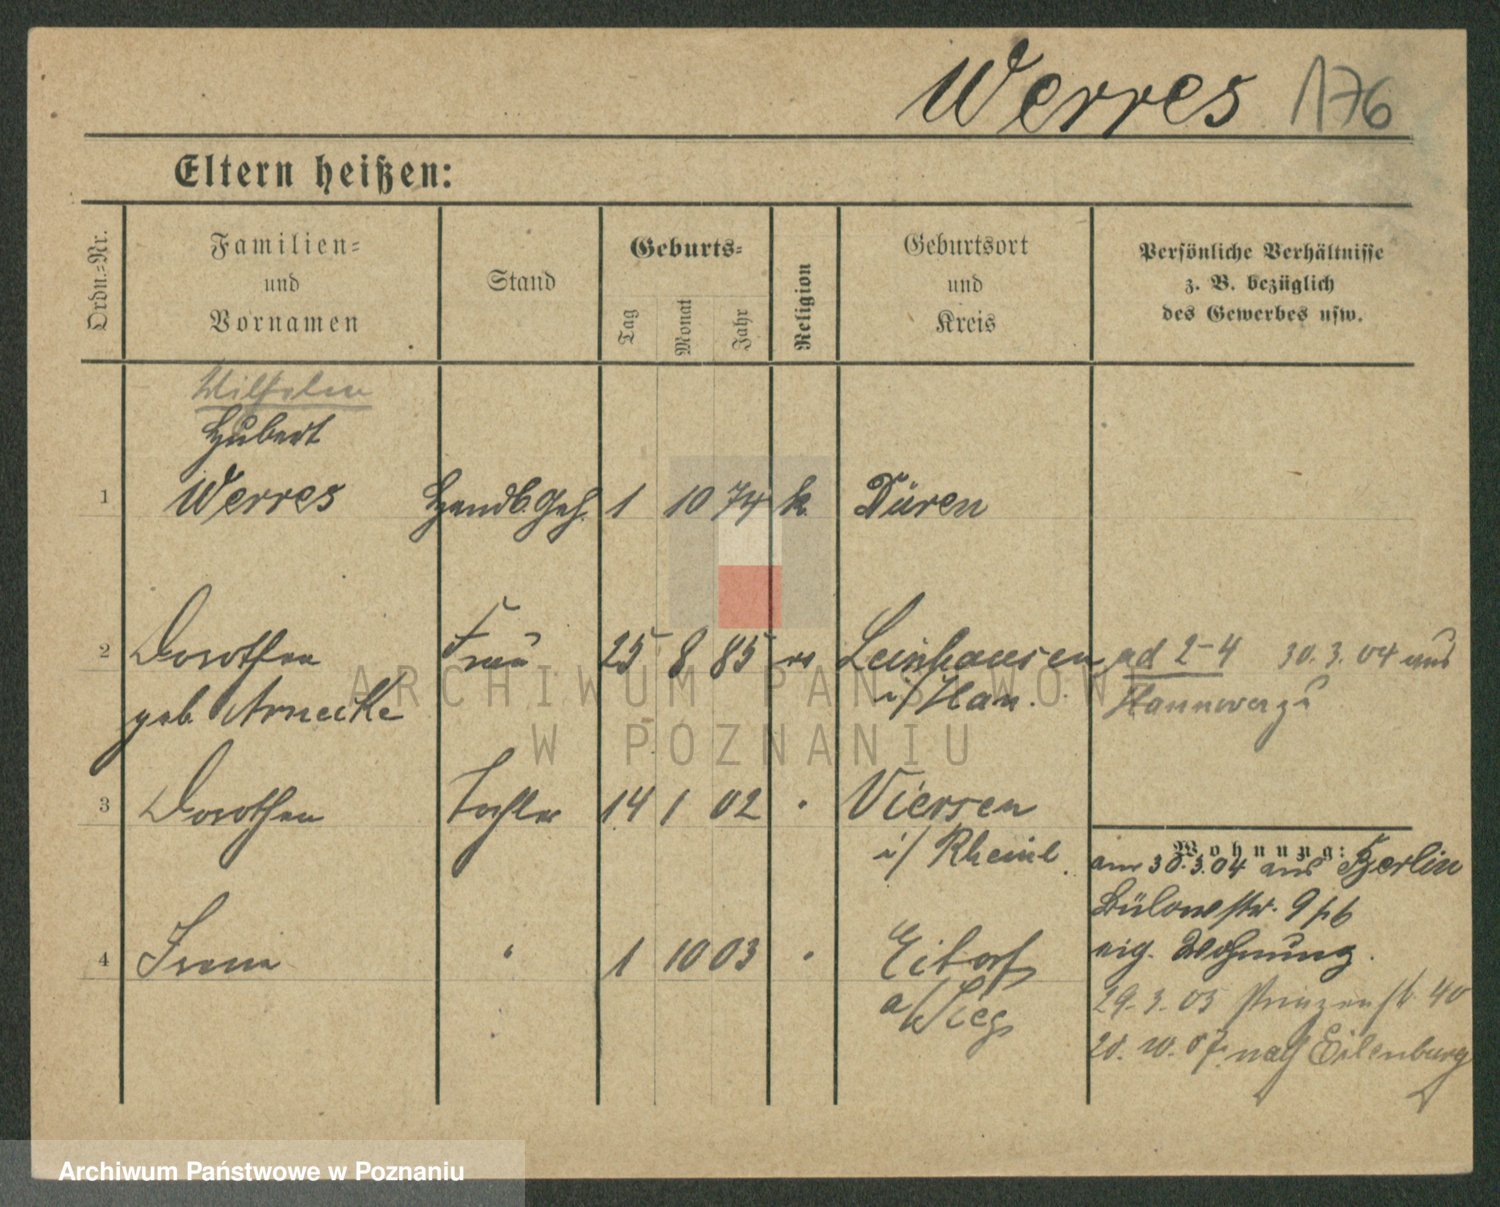 Werres 176
Eltern heißen:
Ordn.=Nr.
Familien=
und
Vornamen
Stand
Geburts=
Tag
Monat
Jahr
Religion
Geburtsort
und
Kreis
Persönliche Verhältnisse
z. B. bezüglich
des Gewerbes usw.
Wilhelm
Hubert
1 Werres Handl. Geh. 1 10 74 k. Düren
2 Dorothea Frau 25 8 85 Leinhausen ad 2-4 30.3.04 aus
geb. Arnecke i/Han. Hannover
3 Dorothea Tochter 14 1 02 " Viersen
i/ Rheinl.
Wohnung:
am 30.3.04 aus Berlin
Bülowstr. 9
4 Irene " 1 10 03 " Eitorf eig. Wohnung.
a/Sieg
29.3.05 Prinzenstr. 40
20.10.07 nach Eilenburg
ARCHIWUM PAŃSTWOWE
W POZNANIU
Archiwum Państwowe w Poznaniu